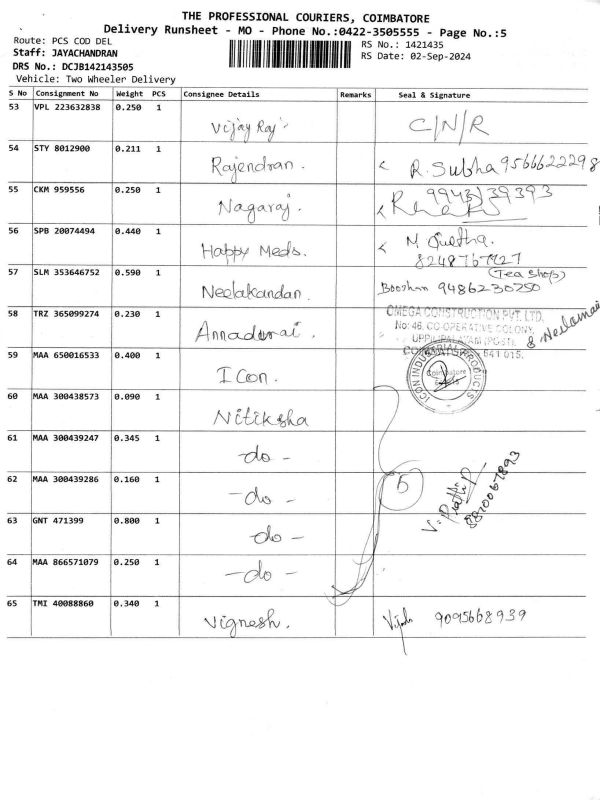 THE PROFESSIONAL COURIERS, COIMBATORE
Delivery Runsheet - MO - Phone No.:0422-3505555 - Page No.:5
Route: PCS COD DEL
RS No.: 1421435
Staff: JAYACHANDRAN
RS Date: 02-Sep-2024
DRS No.: DCJB142143505
Vehicle: Two Wheeler Delivery
S No Consignment No Weight PCS Consignee Details Remarks Seal & Signature
53 VPL 223632838 0.250 1 Vijay Raj C/N/R
54 STY 8012900 0.211 1 Rajendran. R. Subha 9566622298
55 CKM 959556 0.250 1 Nagaraj.
56 SPB 20074494 0.440 1 Happy Meds.
57 SLM 353646752 0.590 1 Neelakandan. (Tea Shop) 9486230250
58 TRZ 365099274 0.230 1 Annadurai.
OMEGA CONSTRUCTION PVT. LTD.
No: 46, CO-OPERATIVE COLONY,
59 MAA 650016533 0.400 1 Icon.
ICON INDUSTRIAL PRODUCTS
Coimbatore
60 MAA 300438573 0.090 1 Nitiksha
61 MAA 300439247 0.345 1 -do-
62 MAA 300439286 0.160 1 -do- 5
63 GNT 471399 0.800 1 -do-
64 MAA 866571079 0.250 1 -do-
65 TMI 40088860 0.340 1 Vignesh. 9095668939